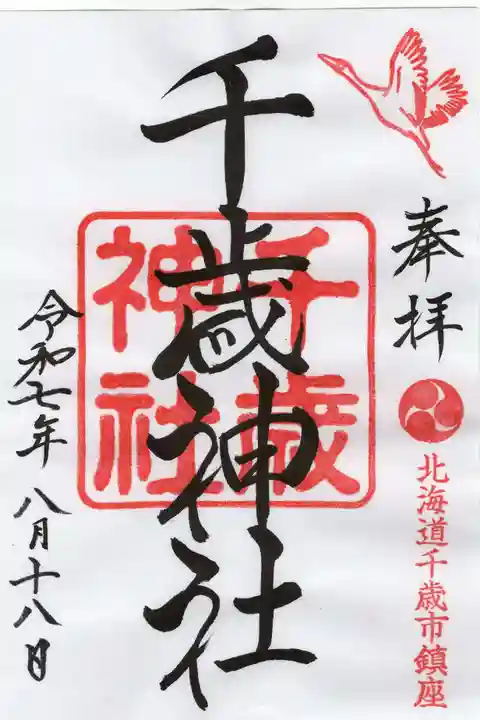 奉拝
北海道千歳市鎮座
千歳神社
千歳
神社
令和七年八月十八日